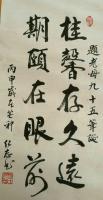 題老母九十五華誕
桂馨存久遠
期頤在眼前
丙申歲在芒种